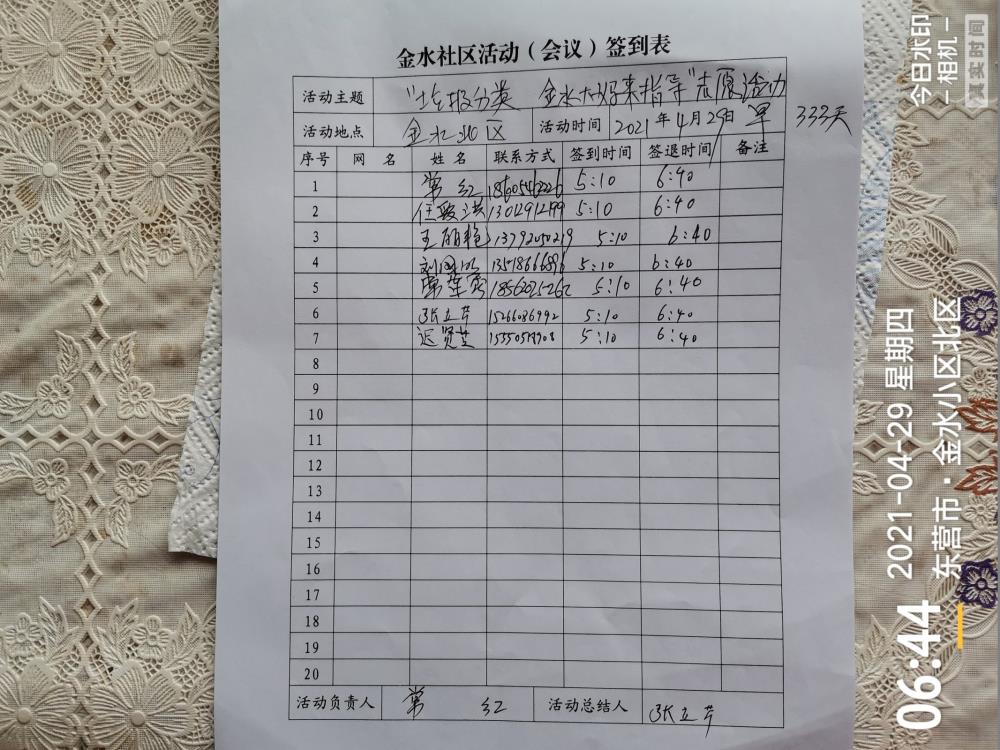 金水社区活动（会议）签到表
活动主题 "垃圾分类 金水大妈来指导"志愿活动
活动地点 金水北区 活动时间 2021年4月29日 早 333天
序号 网名 姓名 联系方式 签到时间 签退时间 备注
1 常红 5:10 6:40
2 5:10 6:40
3 王丽艳 13792050219 5:10 6:40
4 5:10 6:40
5 常莲 5:10 6:40
6 张立芹 15266086992 5:10 6:40
7 迟贤芝 5:10 6:40
8
9
10
11
12
13
14
15
16
17
18
19
20
活动负责人 常红 活动总结人 张立芹
今日水印
-相机-
真实时间
06:44
2021-04-29 星期四
东营市·金水小区北区